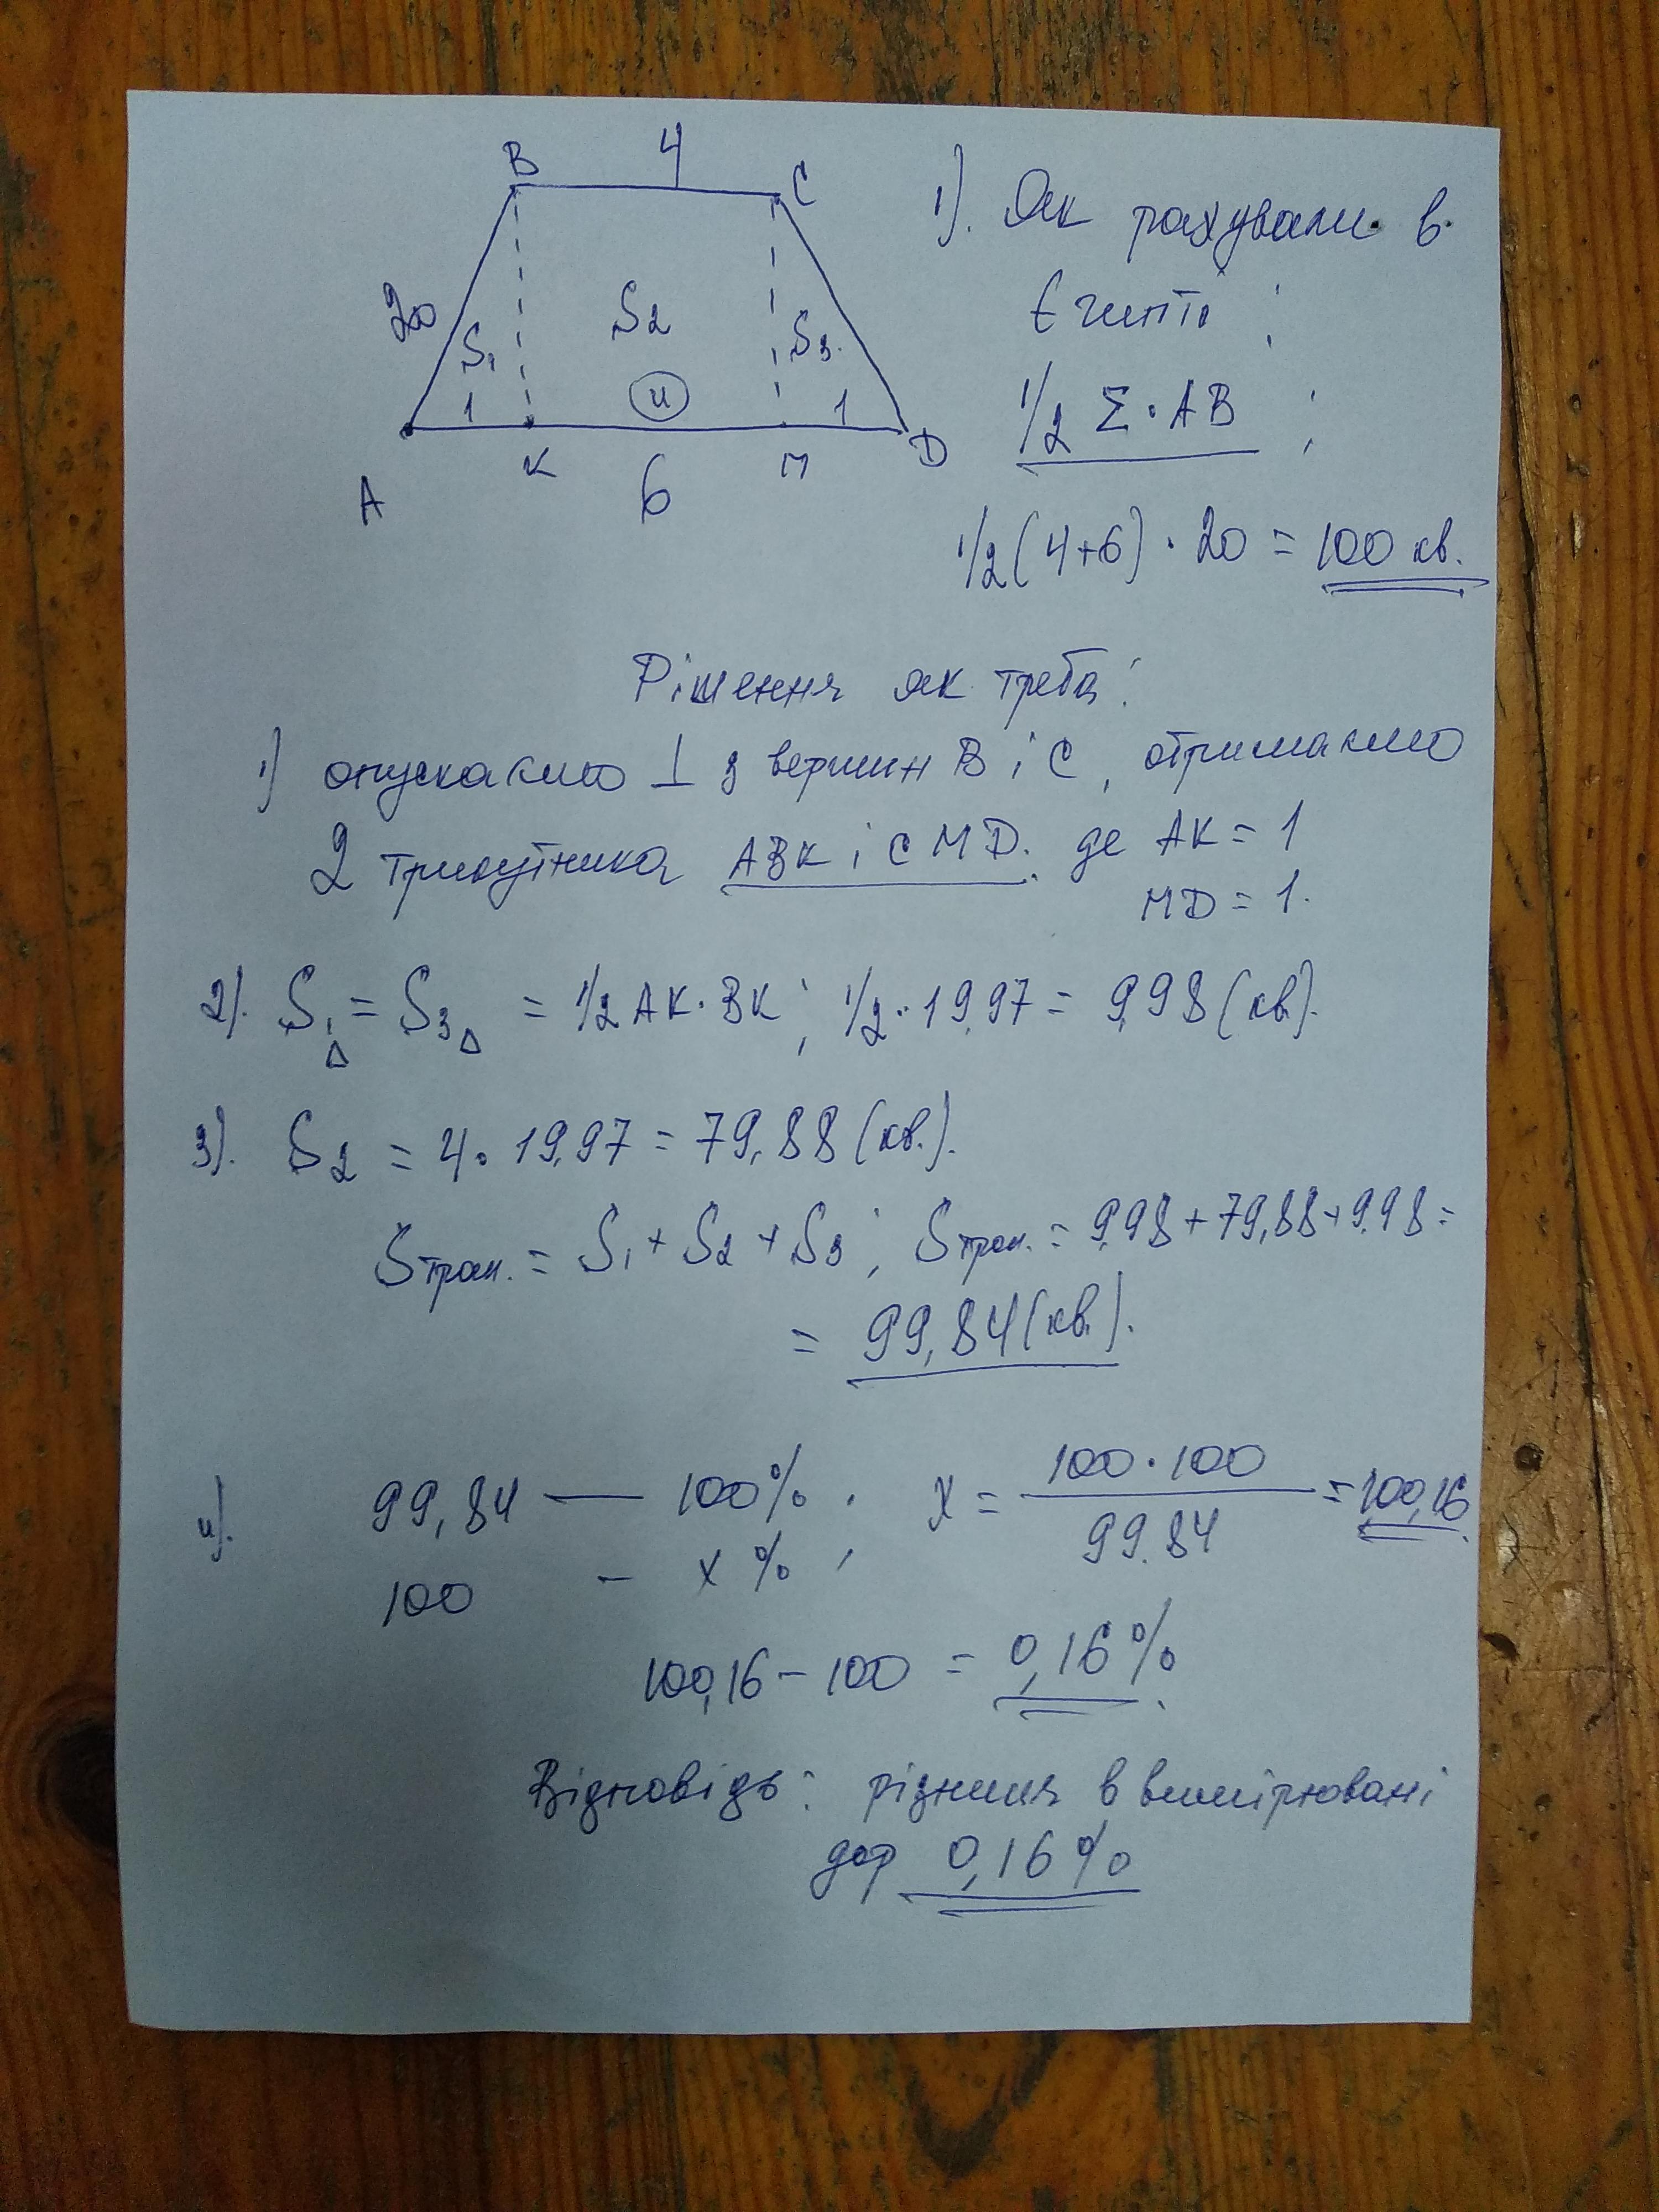 B 4 C
20 S₁ S₂ S₃
1 4 1
A K 6 M D
1). Як рахували в
Єгипті ;
1/2 Σ · AB ;
1/2 (4+6) · 20 = 100 кв.
Рішення як треба:
1) опускаємо ⊥ з вершин B і C, отримаємо
2 трикутника ABK і CMD. де AK = 1
MD = 1.
2). S₁△ = S₃△ = 1/2 AK · BK ; 1/2 · 19,97 = 9,98 (кв).
3). S₂ = 4 · 19,97 = 79,88 (кв.).
Sтрап. = S₁ + S₂ + S₃ ; Sтрап. = 9,98 + 79,88 + 9,98 =
= 99,84 (кв.).
4). 99,84 — 100% ; x = 100 · 100 / 99.84 = 100,16
100 – x % ,
100,16 – 100 = 0,16 %.
Відповідь: різниця в вимірювані
дор 0,16 %